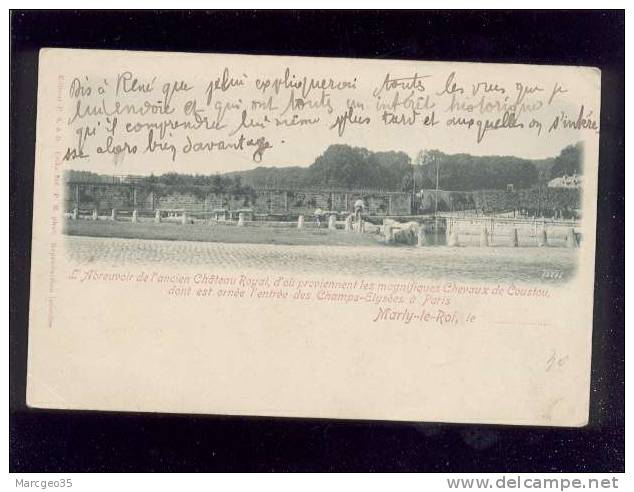 Dis à René que je lui expliquerai toutes les vues que je
lui envoie et qui ont toutes un intérêt historique
qu'il comprendra lui même plus tard et auxquelles on s'intéres
se alors bien davantage.
L'Abreuvoir de l'ancien Château Royal, d'où proviennent les magnifiques Chevaux de Coustou,
dont est ornée l'entrée des Champs-Elysées à Paris
Marly-le-Roi, le
30
Marcgeo35
www.delcampe.net